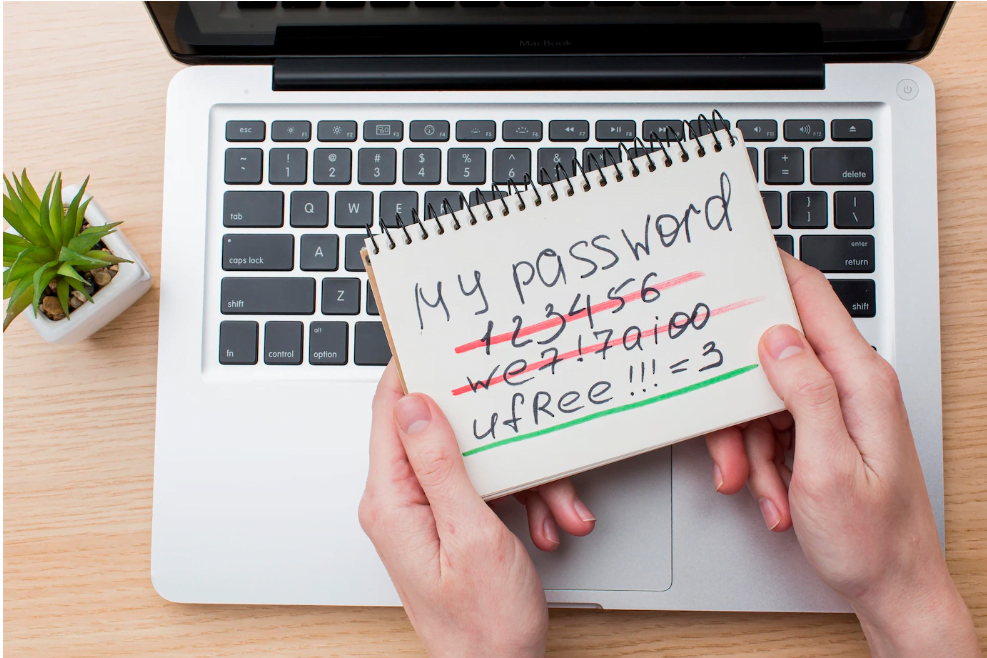 MacBook
esc F1 F2 F3 F4 F5 F6 F7 F8 F11 F12
~ ! @ # $ % ^ & +
` 1 2 3 4 5 6 = delete
tab Q W E } |
] \
caps lock A enter
return
shift Z shift
alt
fn control option
My password
123456
we7!7aioo
ufRee!!!=3